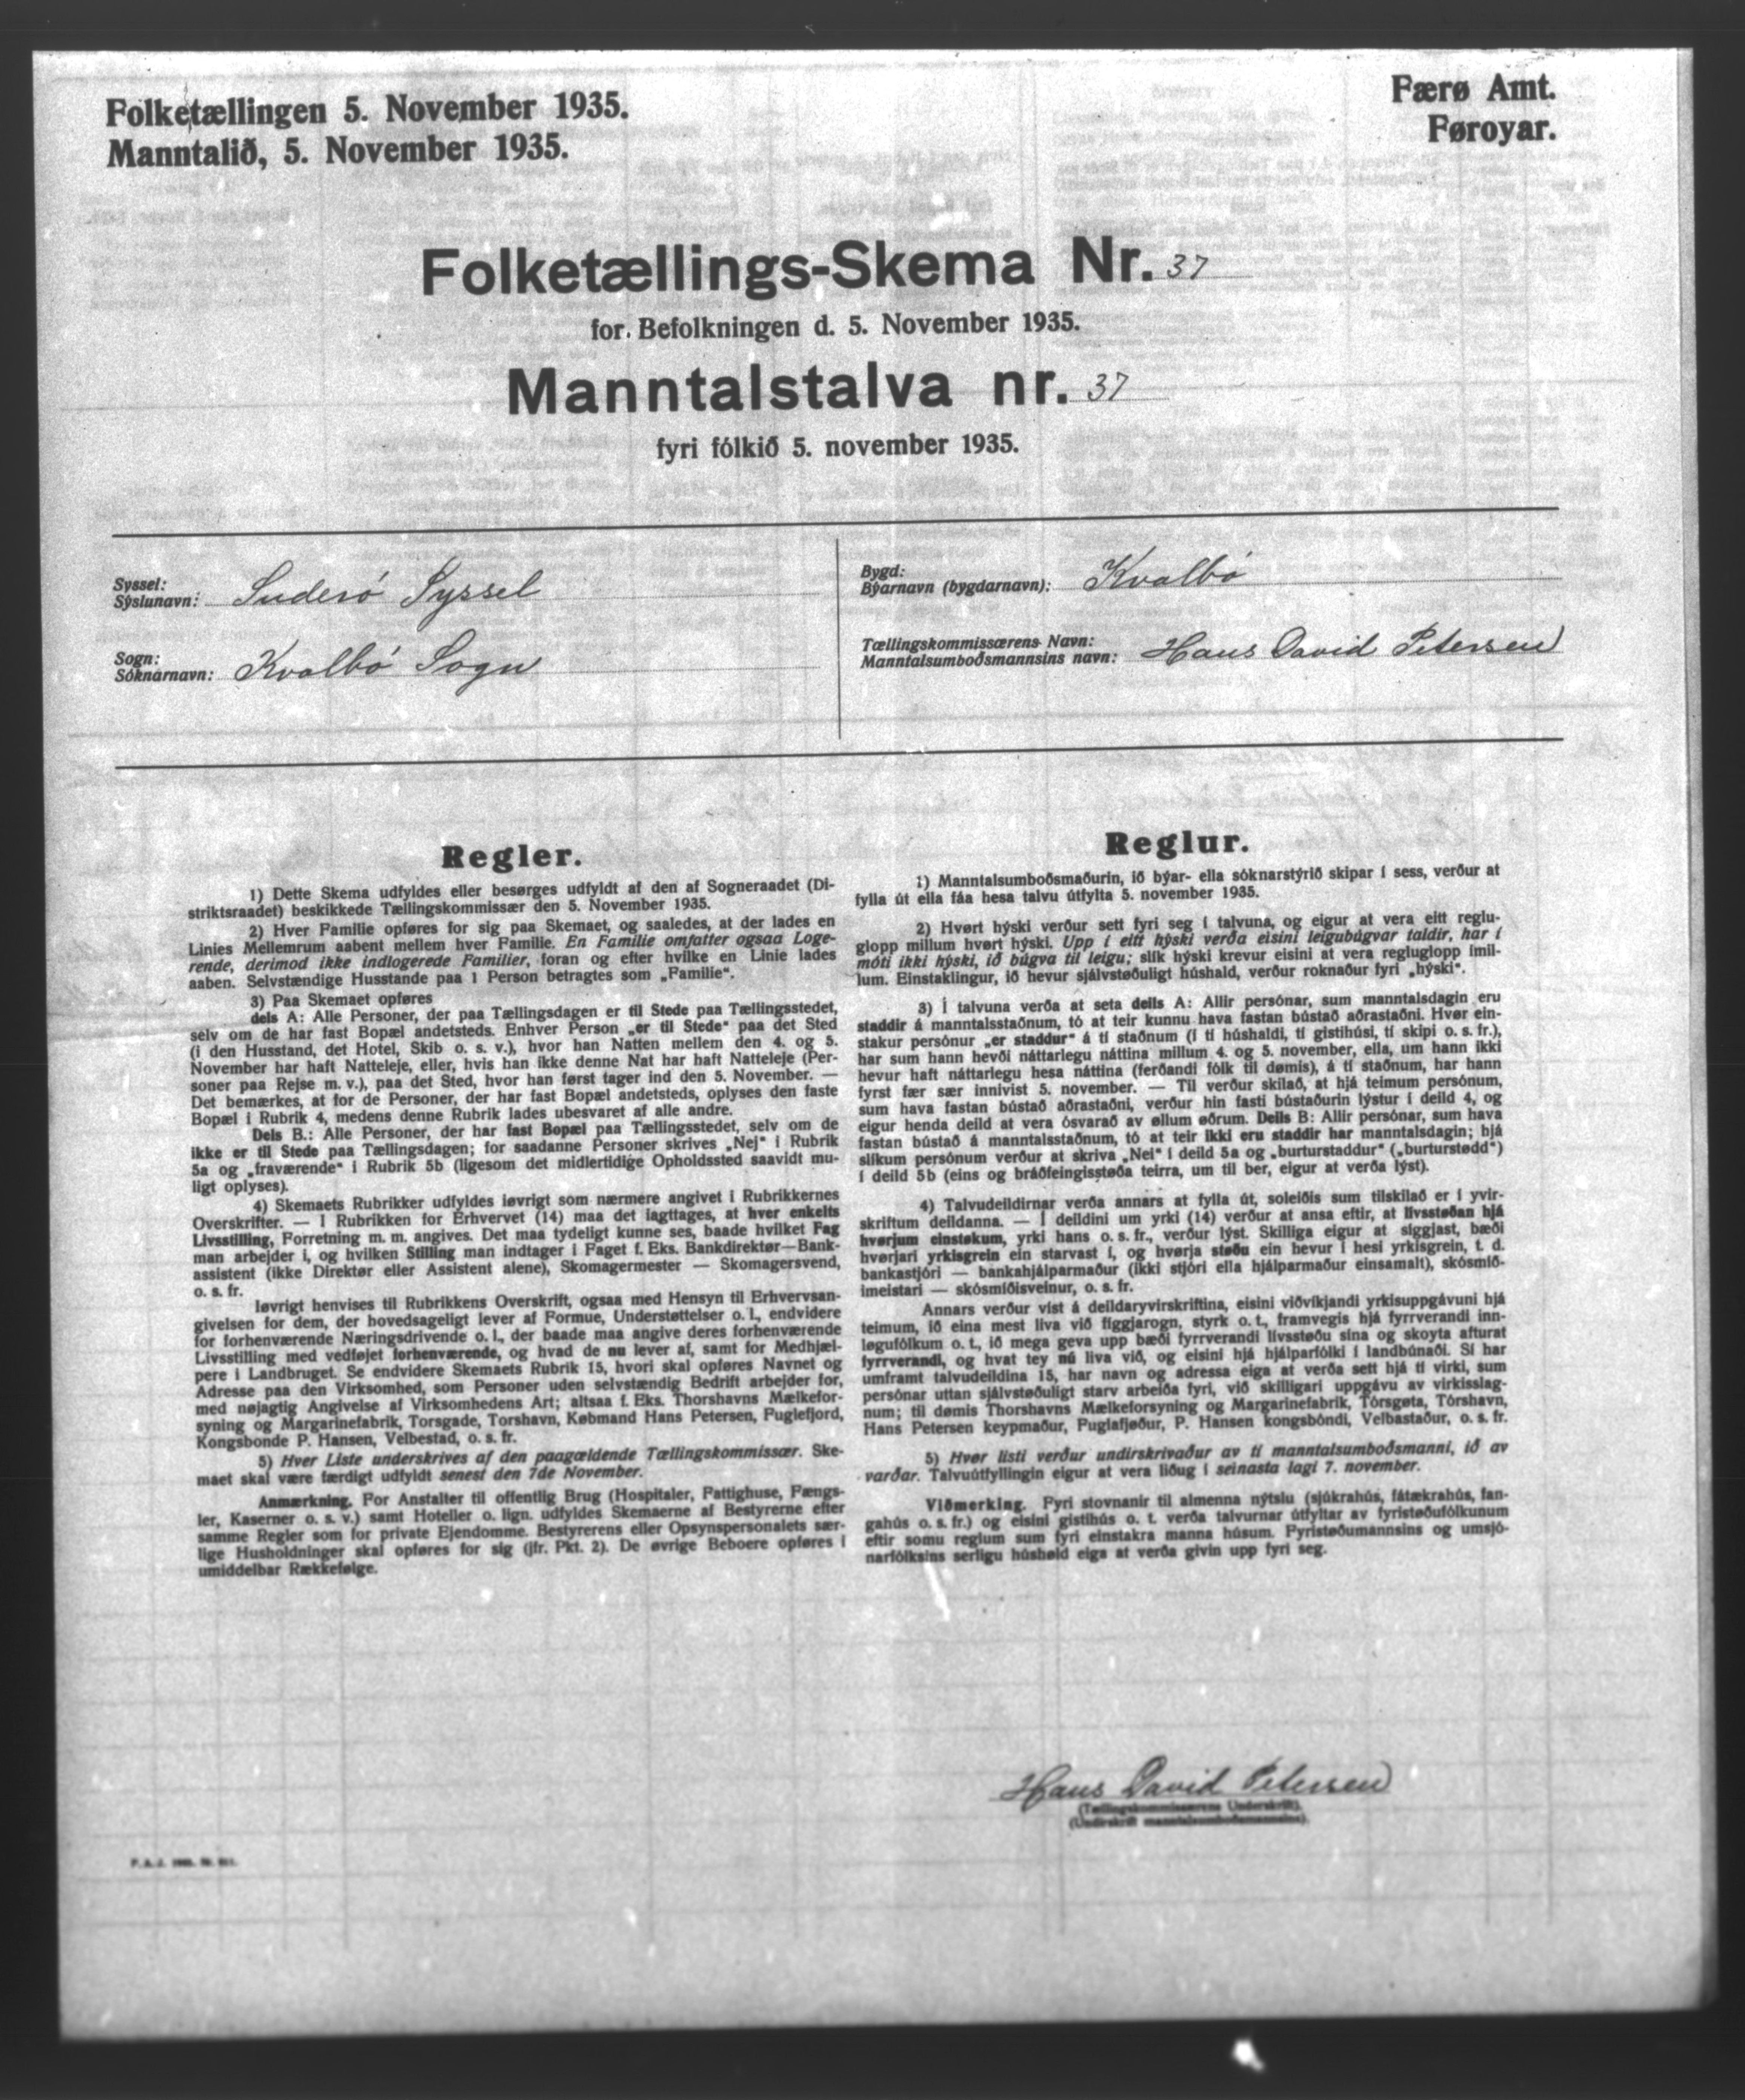 Folketællingen 5. November 1935.
Manntalið, 5. November 1935.
Færø Amt.
Føroyar.
Folketællings-Skema Nr. 37
for Befolkningen d. 5. November 1935.
Manntalstalva nr. 37
fyri fólkið 5. november 1935.
Syssel:
Sýslunavn: Suderó Syssel
Sogn:
Sóknarnavn: Kvalbó Sogn
Bygd:
Býarnavn (bygdarnavn): Kvalbó
Tællingskommissærens Navn:
Manntalsumboðsmannsins navn: Hans David Petersen
Regler.
1) Dette Skema udfyldes eller besørges udfyldt af den af Sogneraadet (Di-
striktsraadet) beskikkede Tællingskommissær den 5. November 1935.
2) Hver Familie opføres for sig paa Skemaet, og saaledes, at der lades en
Linies Mellemrum aabent mellem hver Familie. En Familie omfatter ogsaa Loge-
rende, derimod ikke indlogerede Familier, foran og efter hvilke en Linie lades
aaben. Selvstændige Husstande paa 1 Person betragtes som „Familie“.
3) Paa Skemaet opføres
dels A: Alle Personer, der paa Tællingsdagen er til Stede paa Tællingsstedet,
selv om de har fast Bopæl andetsteds. Enhver Person „er til Stede“ paa det Sted
(i den Husstand, det Hotel, Skib o. s. v.), hvor han Natten mellem den 4. og 5.
November har haft Natteleje, eller, hvis han ikke denne Nat har haft Natteleje (Per-
soner paa Rejse m. v.), paa det Sted, hvor han først tager ind den 5. November. —
Det bemærkes, at for de Personer, der har fast Bopæl andetsteds, oplyses den faste
Bopæl i Rubrik 4, medens denne Rubrik lades ubesvaret af alle andre.
Dels B.: Alle Personer, der har fast Bopæl paa Tællingsstedet, selv om de
ikke er til Stede paa Tællingsdagen; for saadanne Personer skrives „Nej“ i Rubrik
5a og „fraværende“ i Rubrik 5b (ligesom det midlertidige Opholdssted saavidt mu-
ligt oplyses).
4) Skemaets Rubrikker udfyldes iøvrigt som nærmere angivet i Rubrikkernes
Overskrifter. — I Rubrikken for Erhvervet (14) maa det iagttages, at hver enkelts
Livsstilling, Forretning m. m. angives. Det maa tydeligt kunne ses, baade hvilket Fag
man arbejder i, og hvilken Stilling man indtager i Faget f. Eks. Bankdirektør—Bank-
assistent (ikke Direktør eller Assistent alene), Skomagermester — Skomagersvend,
o. s. fr.
Iøvrigt henvises til Rubrikkens Overskrift, ogsaa med Hensyn til Erhvervsan-
givelsen for dem, der hovedsageligt lever af Formue, Understøttelser o. l., endvidere
for forhenværende Næringsdrivende o. l., der baade maa angive deres forhenværende
Livsstilling med vedføjet forhenværende, og hvad de nu lever af, samt for Medhjæl-
pere i Landbruget. Se endvidere Skemaets Rubrik 15, hvori skal opføres Navnet og
Adresse paa den Virksomhed, som Personer uden selvstændig Bedrift arbejder for,
med nøjagtig Angivelse af Virksomhedens Art; altsaa f. Eks. Thorshavns Mælkefor-
syning og Margarinefabrik, Torsgade, Torshavn, Købmand Hans Petersen, Fuglefjord,
Kongsbonde P. Hansen, Velbestad, o. s. fr.
5) Hver Liste underskrives af den paagældende Tællingskommissær. Ske-
maet skal være færdigt udfyldt senest den 7de November.
Anmærkning. For Anstalter til offentlig Brug (Hospitaler, Fattighuse, Fængs-
ler, Kaserner o. s. v.) samt Hoteller o. lign. udfyldes Skemaerne af Bestyrerne efter
samme Regler som for private Ejendomme. Bestyrerens eller Opsynspersonalets sær-
lige Husholdninger skal opføres for sig (jfr. Pkt. 2). De øvrige Beboere opføres i
umiddelbar Rækkefølge.
Reglur.
1) Manntalsumboðsmaðurin, ið býar- ella sóknarstýrið skipar í sess, verður at
fylla út ella fáa hesa talvu útfylta 5. november 1935.
2) Hvørt hýski verður sett fyri seg í talvuna, og eigur at vera eitt reglu-
glopp millum hvørt hýski. Upp í eitt hýski verða eisini leigubúgvar taldir, har í
móti ikki hýski, ið búgva til leigu; slík hýski krevur eisini at vera regluglopp ímil-
lum. Einstaklingur, ið hevur sjálvstøðuligt húshald, verður roknaður fyri „hýski“.
3) Í talvuna verða at seta deils A: Allir persónar, sum manntalsdagin eru
staddir á manntalsstaðnum, tó at teir kunnu hava fastan bústað aðrastaðni. Hvør ein-
stakur persónur „er staddur“ á tí staðnum (í tí húshaldi, tí gistihúsi, tí skipi o. s. fr.),
har sum hann hevði náttarlegu náttina millum 4. og 5. november, ella, um hann ikki
hevur haft náttarlegu hesa náttina (ferðandi fólk til dømis), á tí staðnum, har hann
fyrst fær sær innivist 5. november. — Til verður skilað, at hjá teimum persónum,
sum hava fastan bústað aðrastaðni, verður hin fasti bústaðurin lýstur í deild 4, og
eigur henda deild at vera ósvarað av øllum øðrum. Deils B: Allir persónar, sum hava
fastan bústað á manntalsstaðnum, tó at teir ikki eru staddir har manntalsdagin; hjá
slíkum persónum verður at skriva „Nei“ í deild 5a og „burturstaddur“ („burturstødd“)
í deild 5b (eins og bráðfeingisstøða teirra, um til ber, eigur at verða lýst).
4) Talvudeildirnar verða annars at fylla út, soleiðis sum tilskilað er í yvir-
skriftum deildanna. — Í deildini um yrki (14) verður at ansa eftir, at livsstøðan hjá
hvørjum einstøkum, yrki hans o. s. fr., verður lýst. Skilliga eigur at siggjast, bæði
hvørjari yrkisgrein ein starvast í, og hvørja støðu ein hevur í hesi yrkisgrein, t. d.
bankastjóri — bankahjálparmaður (ikki stjóri ella hjálparmaður einsamalt), skósmið-
imeistari — skósmiðisveinur, o. s. fr.
Annars verður vist á deildaryvirskriftina, eisini viðvíkjandi yrkisuppgávuni hjá
teimum, ið eina mest liva við figgjarogn, styrk o. t., framvegis hjá fyrrverandi inn-
løgufólkum o. t., ið mega geva upp bæði fyrrverandi livsstøðu sína og skoyta afturat
fyrrverandi, og hvat tey nú liva við, og eisini hjá hjálparfólki í landbúnaði. Sí har
umframt talvudeildina 15, har navn og adressa eiga at verða sett hjá tí virki, sum
persónar uttan sjálvstøðuligt starv arbeiða fyri, við skilligari uppgávu av virkisslag-
num; til dømis Thorshavns Mælkeforsyning og Margarinefabrik, Tórsgøta, Tórshavn,
Hans Petersen keypmaður, Fuglafjøður, P. Hansen kongsbóndi, Velbastaður, o. s. fr.
5) Hvør listi verður undirskrivaður av tí manntalsumboðsmanni, ið av
varðar. Talvuútfyllingin eigur at vera liðug í seinasta lagi 7. november.
Viðmerking. Fyri stovnanir til almenna nýtslu (sjúkrahús, fátækrahús, fan-
gahús o. s. fr.) og eisini gistihús o. t. verða talvurnar útfyltar av fyristøðufólkunum
eftir somu reglum sum fyri einstakra manna húsum. Fyristøðumannsins og umsjó-
narfólksins serligu húshøld eiga at verða givin upp fyri seg.
Hans David Petersen
(Tællingskommissærens Underskrift).
(Undirskrift manntalsumboðsmannsins).